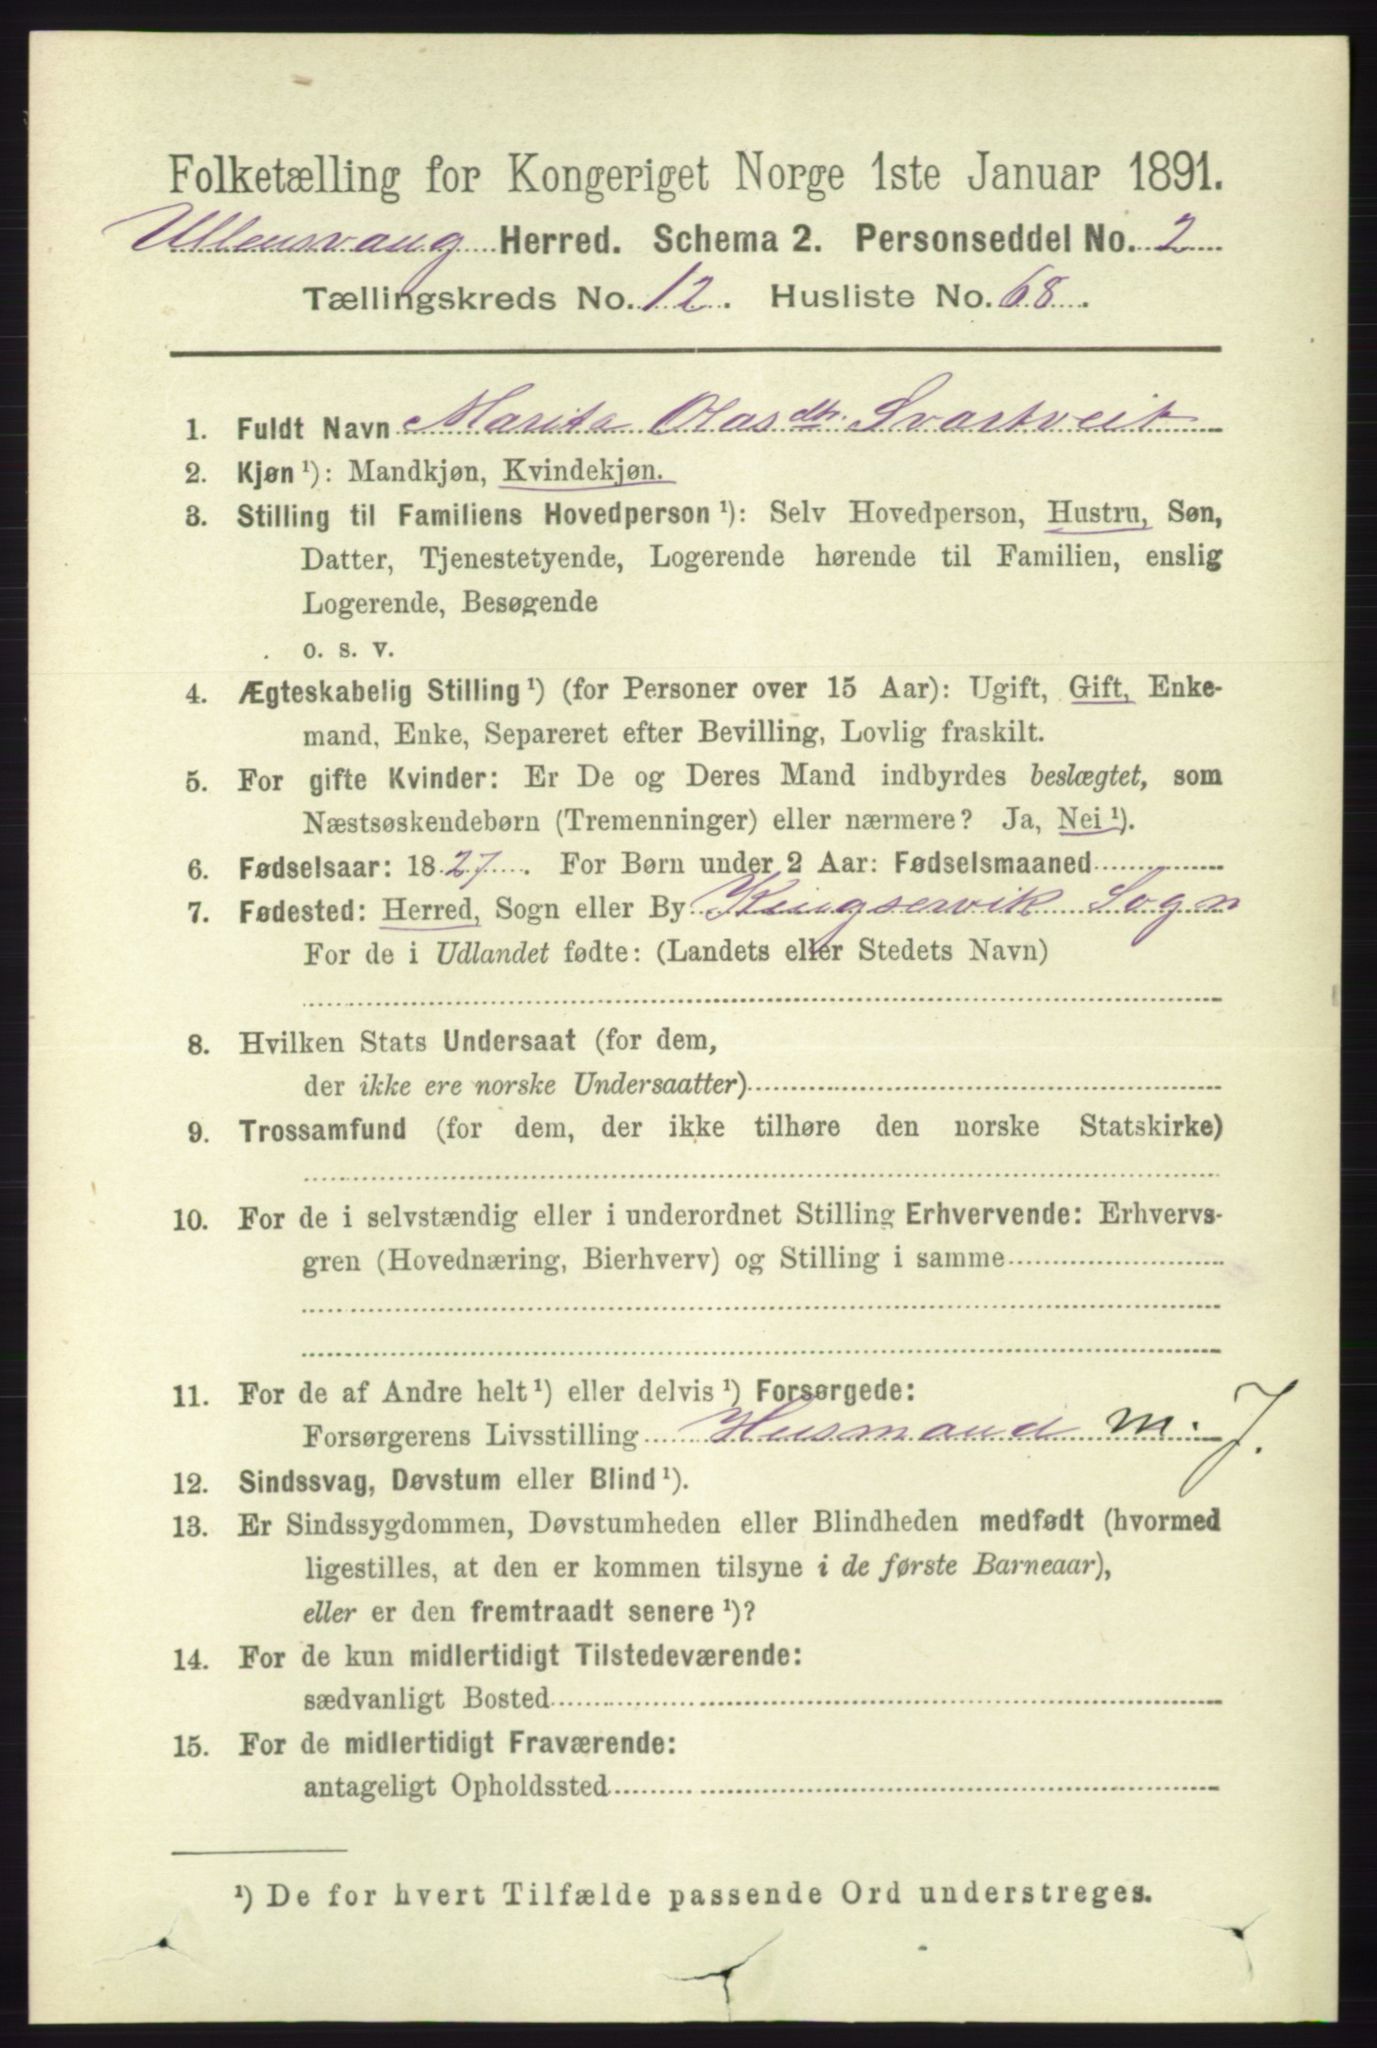 Folketælling for Kongeriget Norge 1ste Januar 1891.
Ullensvang Herred. Schema 2. Personseddel No. 2
Tællingskreds No. 12. Husliste No. 68.
1. Fuldt Navn Marita Olasdtr. Svartveit
2. Kjøn ¹): Mandkjøn, Kvindekjøn.
3. Stilling til Familiens Hovedperson ¹): Selv Hovedperson, Hustru, Søn,
Datter, Tjenestetyende, Logerende hørende til Familien, enslig
Logerende, Besøgende
o. s. v.
4. Ægteskabelig Stilling ¹) (for Personer over 15 Aar): Ugift, Gift, Enke-
mand, Enke, Separeret efter Bevilling, Lovlig fraskilt.
5. For gifte Kvinder: Er De og Deres Mand indbyrdes beslægtet, som
Næstsøskendebørn (Tremenninger) eller nærmere? Ja, Nei ¹).
6. Fødselsaar: 1827. For Børn under 2 Aar: Fødselsmaaned
7. Fødested: Herred, Sogn eller By Kingservik Sogn
For de i Udlandet fødte: (Landets eller Stedets Navn)
8. Hvilken Stats Undersaat (for dem,
der ikke ere norske Undersaatter)
9. Trossamfund (for dem, der ikke tilhøre den norske Statskirke)
10. For de i selvstændig eller i underordnet Stilling Erhvervende: Erhvervs-
gren (Hovednæring, Bierhverv) og Stilling i samme
11. For de af Andre helt ¹) eller delvis ¹) Forsørgede:
Forsørgerens Livsstilling Husmand m. J.
12. Sindssvag, Døvstum eller Blind ¹).
13. Er Sindssygdommen, Døvstumheden eller Blindheden medfødt (hvormed
ligestilles, at den er kommen tilsyne i de første Barneaar),
eller er den fremtraadt senere ¹)?
14. For de kun midlertidigt Tilstedeværende:
sædvanligt Bosted
15. For de midlertidigt Fraværende:
antageligt Opholdssted
¹) De for hvert Tilfælde passende Ord understreges.